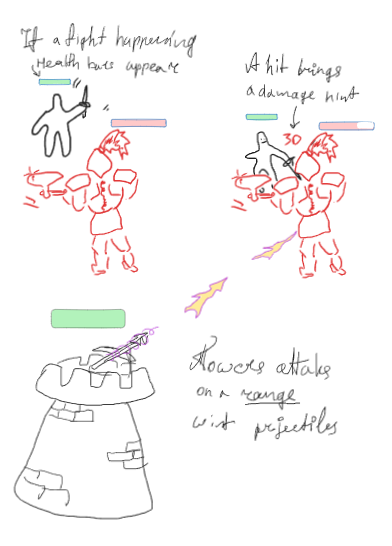 If a fight happening
Health bars appear
A hit brings
a damage hint
30
Towers attaks
on a range
wist projectiles